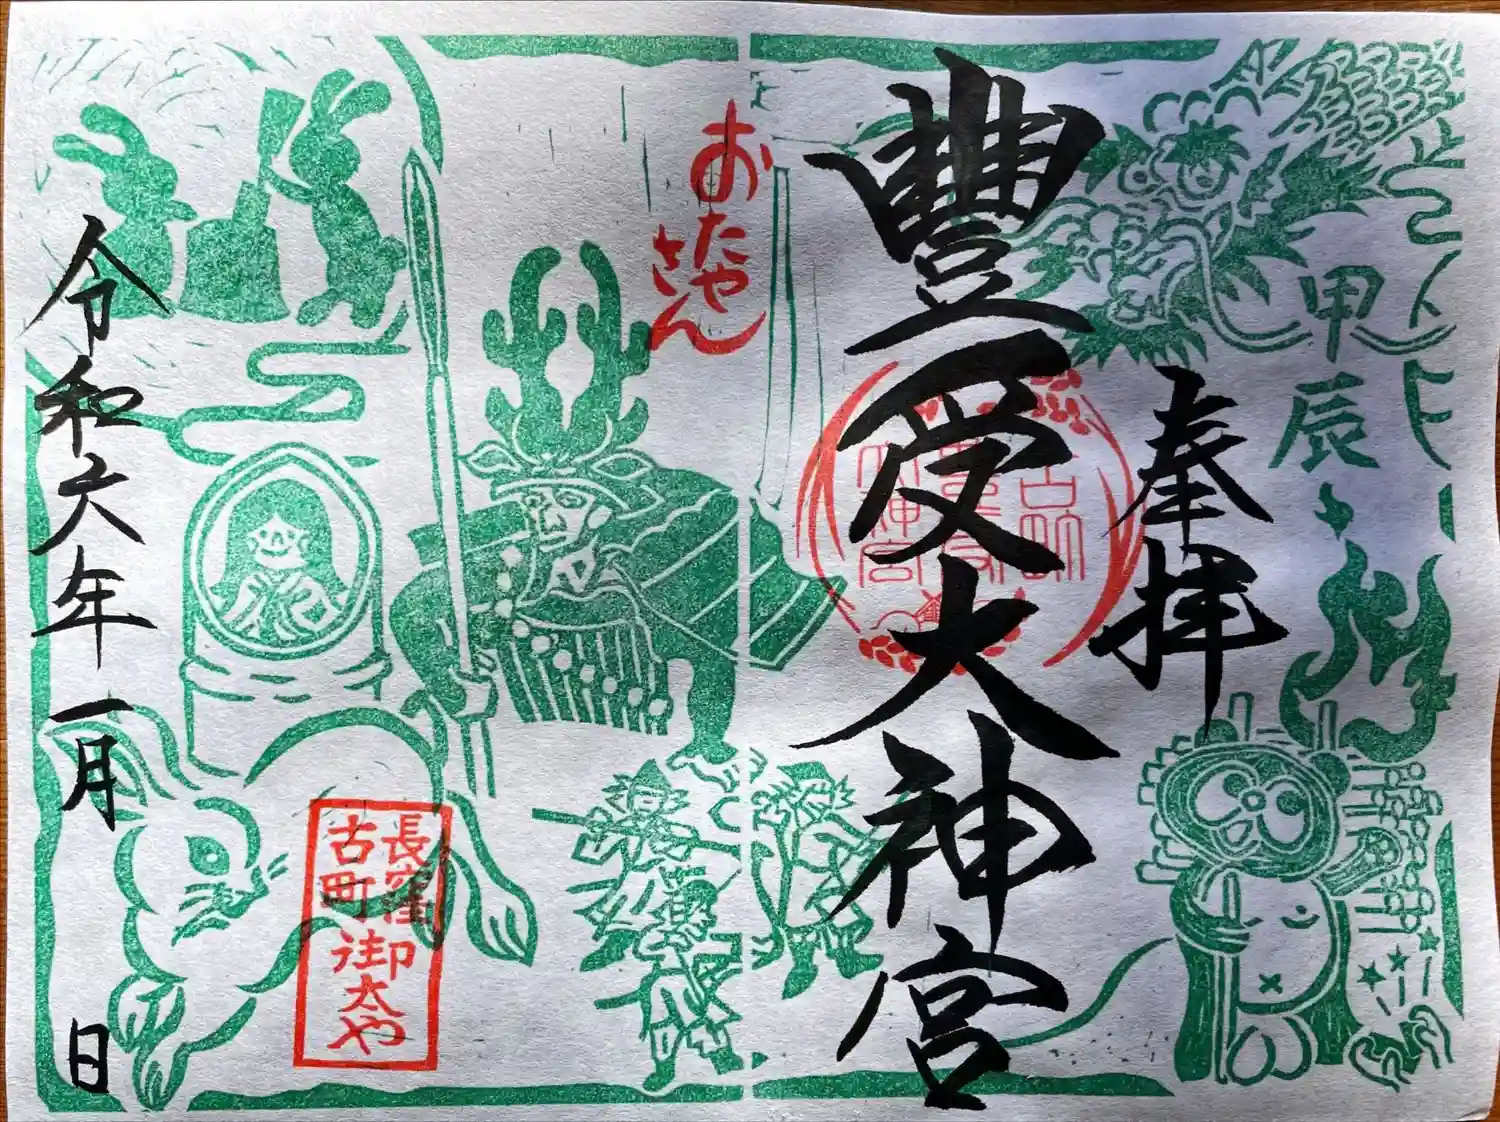 甲辰
奉拝
豐受大神宮
おたや
さん
長窪
古町
御太や
令和六年一月 日